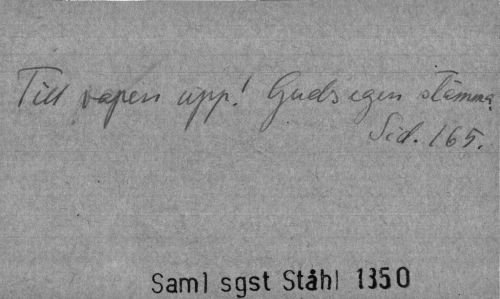 Till vapen upp! Guds egen stämma
Sid. 165.
Saml sgst Ståhl 1350